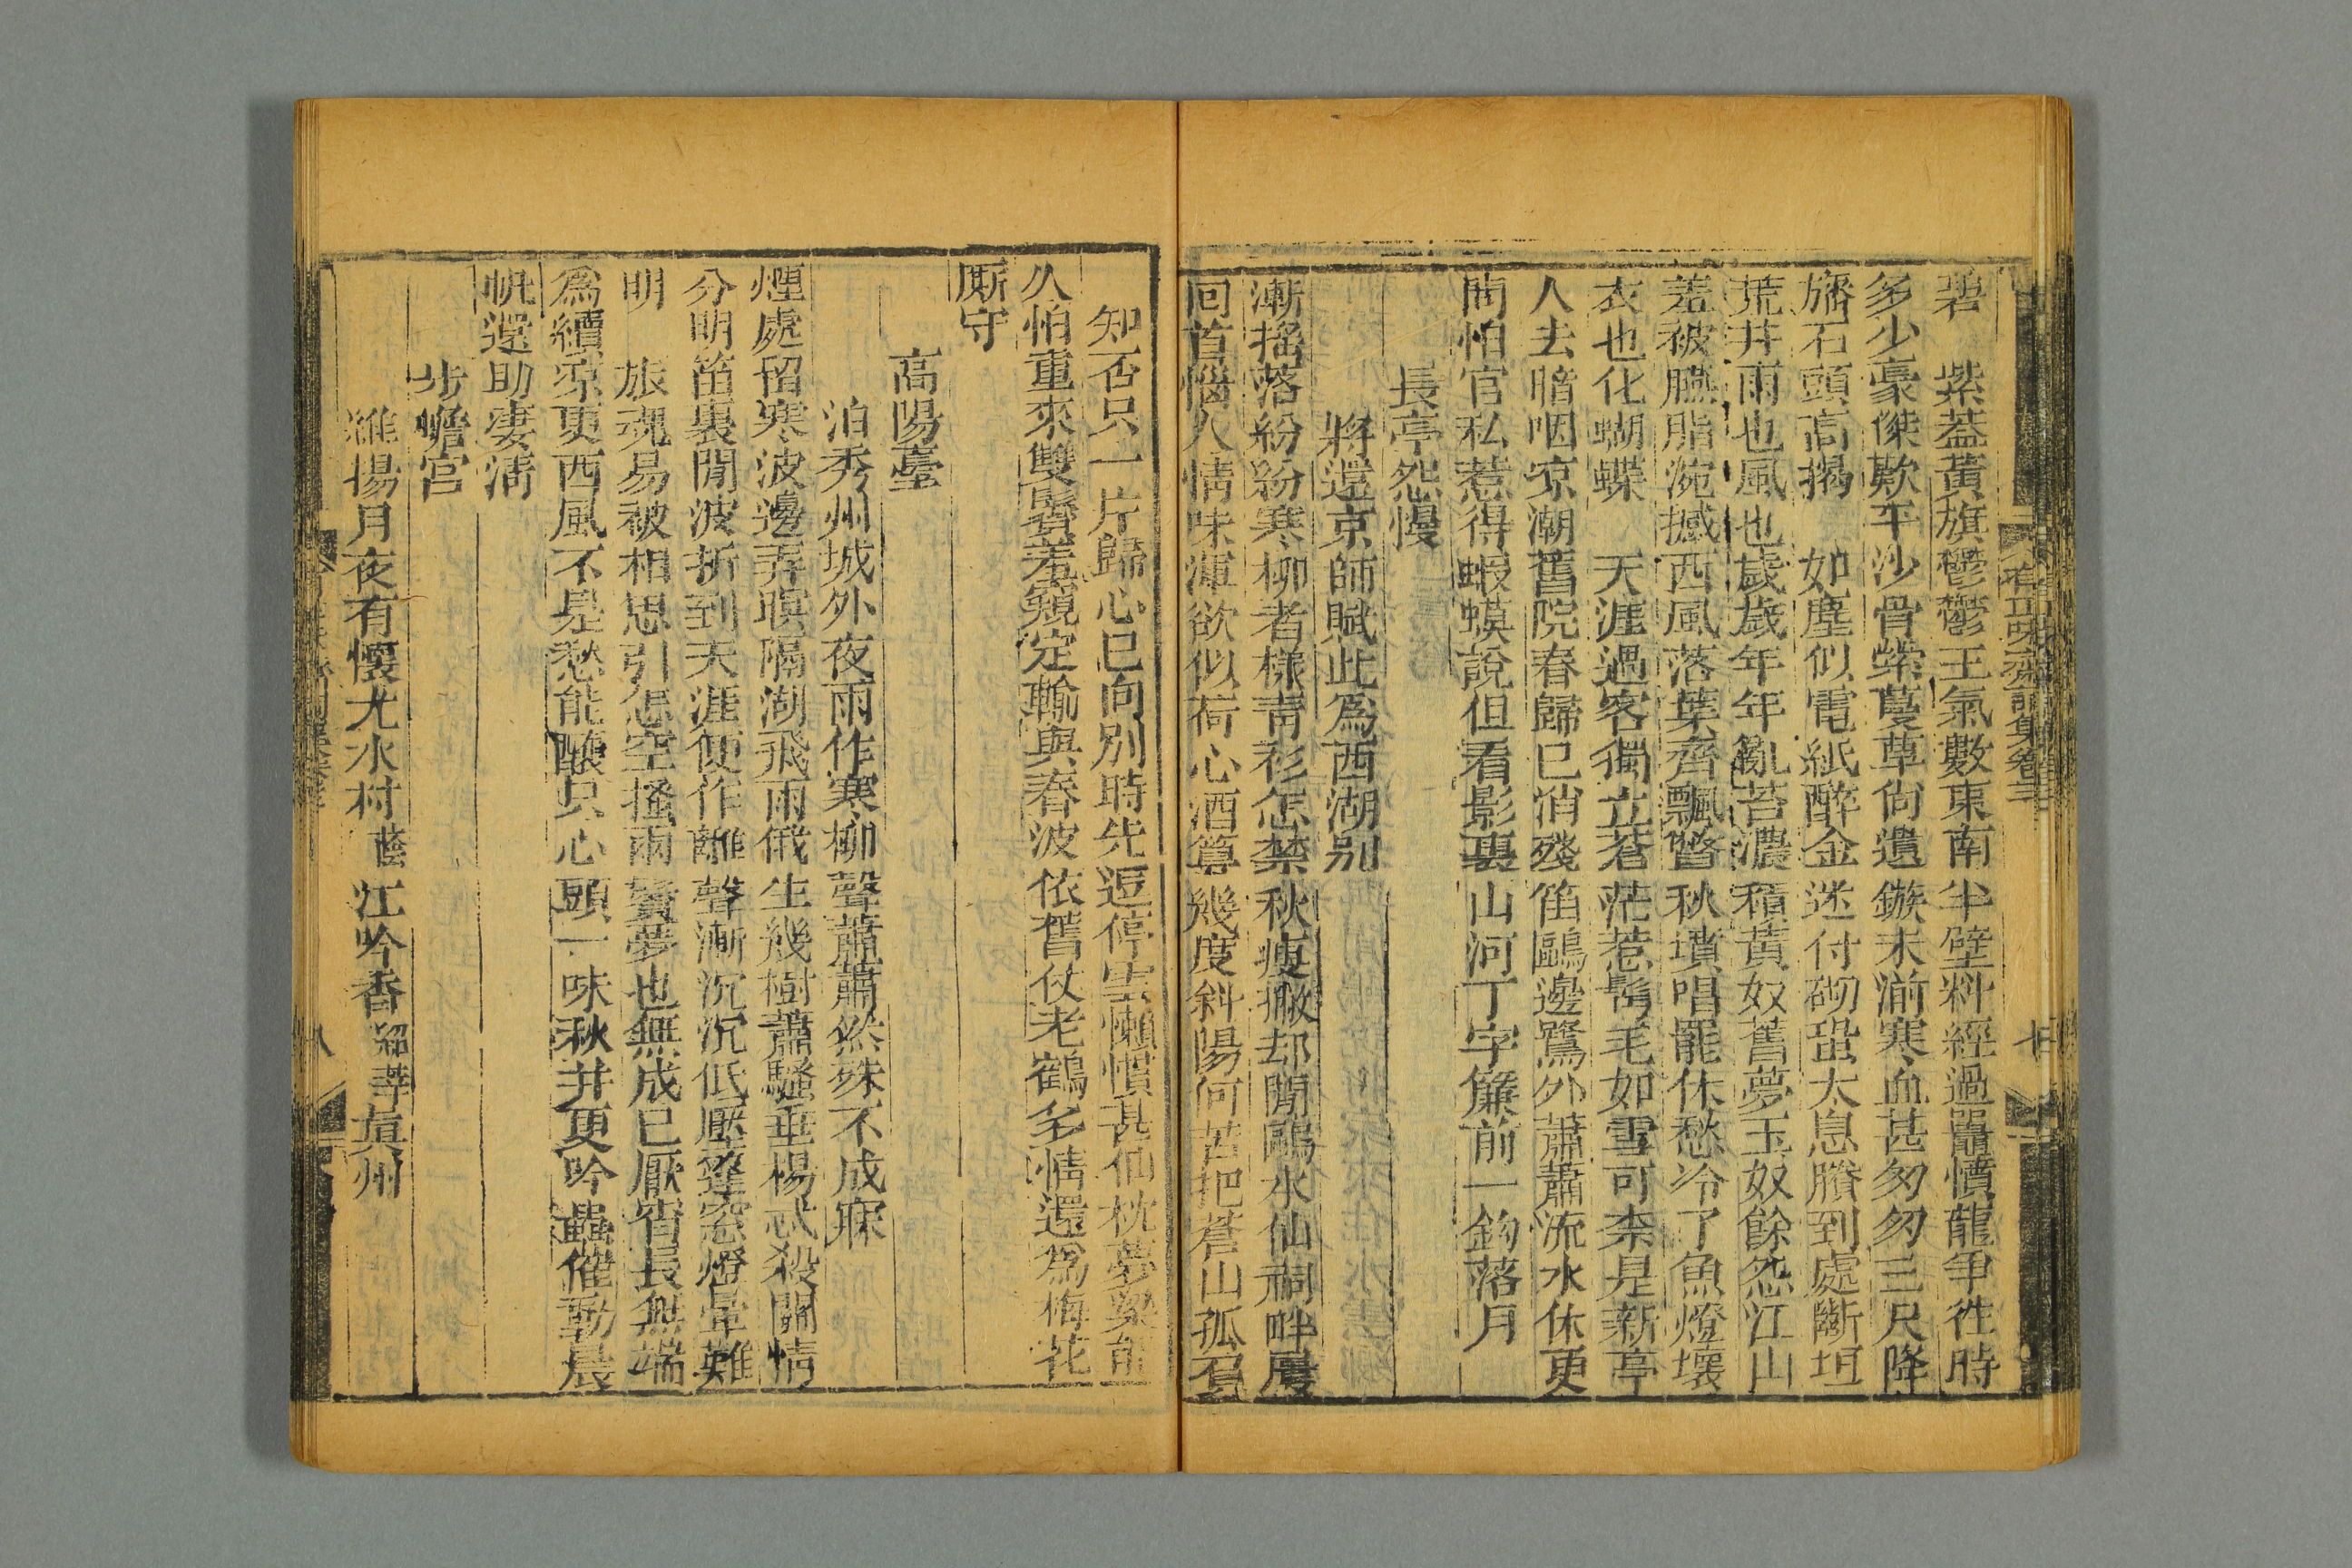 碧　紫蓋黃旗鬱鬱王氣數東南半壁料經過罵憤龍爭徃時
多少豪傑歎平沙骨縈蔓草尙遺鏃未湔寒血甚匆匆三尺降
旛石頭高揭　如塵似電紙醉金迷付砌蛩太息賸到處斷垣
荒井雨也風也歲歲年年亂苔濃積黃奴舊夢玉奴餘怨江山
羞被臙脂涴撼西風落葉齊飄瞥秋墳唱罷休愁冷了魚燈壞
衣也化蝴蝶　天涯過客獨立蒼茫惹鬢毛如雪可柰是新亭
人去暗咽凉潮舊院春歸已消殘笛鷗邊鷺外蕭蕭流水休更
問怕官私惹得蝦蟆說但看影裏山河丁字簾前一鉤落月
長亭怨慢
將還京師賦此爲西湖别
漸搖落紛紛寒柳者樣靑衫怎禁秋瘦撇却閒鷗水仙祠畔屢
回首惱人情味渾欲似荷心酒算幾度斜陽何苦把蒼山孤負
有正味齋詞集卷三
七
知否只一片歸心已向别時先逗停雲懶慣甚仙枕夢粱能
久怕重來雙鬢羞窺定輸與春波依舊仗老鶴多情還爲梅花
厮守
高陽臺
泊秀州城外夜雨作寒柳聲蕭蕭然殊不成寐
煙處留寒波邊弄暝隔湖飛雨俄生幾樹蕭騷垂楊忒殺關情
分明笛裏閒波折到天涯便作離聲漸沉沉低壓篷窓燈暈難
明　旅魂易被相思引怎空搔兩鬢夢也無成已厭宵長無端
爲續凉更西風不是愁能釀只心頭一味秋并更吟蟲催動晨
帆還助凄清
步蟾宮
維揚月夜有懷尤水村蔭江吟香紹莘眞州
八